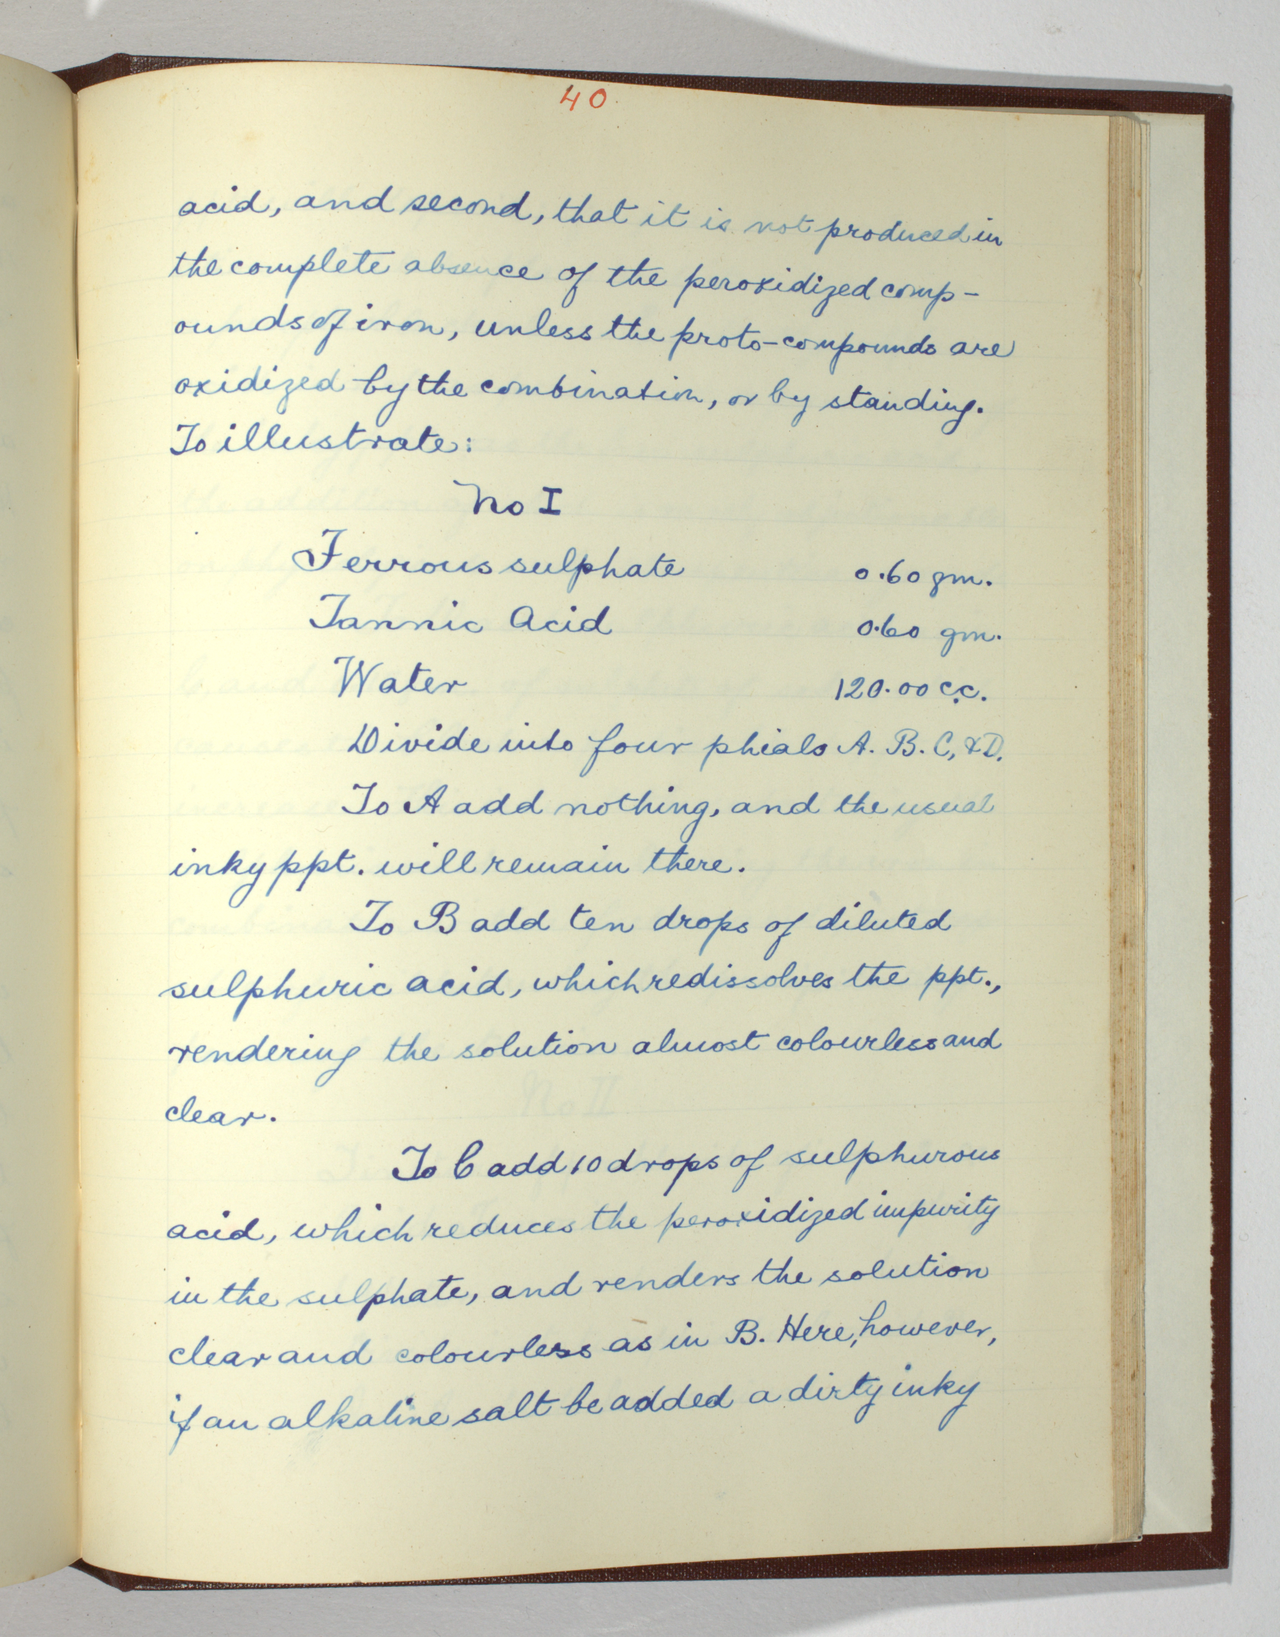 40
acid, and second, that it is not produced in
the complete absence of the peroxidized comp-
ounds of iron, unless the proto-compounds are
oxidized by the combination, or by standing.
To illustrate:
No I
Ferrous sulphate 0.60 gm.
Tannic Acid 0.60 gm.
Water 120.00 c.c.
Divide into four phials A. B. C, & D.
To A add nothing, and the usual
inky ppt. will remain there.
To B add ten drops of diluted
sulphuric acid, which redissolves the ppt.,
rendering the solution almost colourless and
clear.
To C add 10 drops of sulphurous
acid, which reduces the peroxidized impurity
in the sulphate, and renders the solution
clear and colourless as in B. Here, however,
if an alkaline salt be added a dirty inky